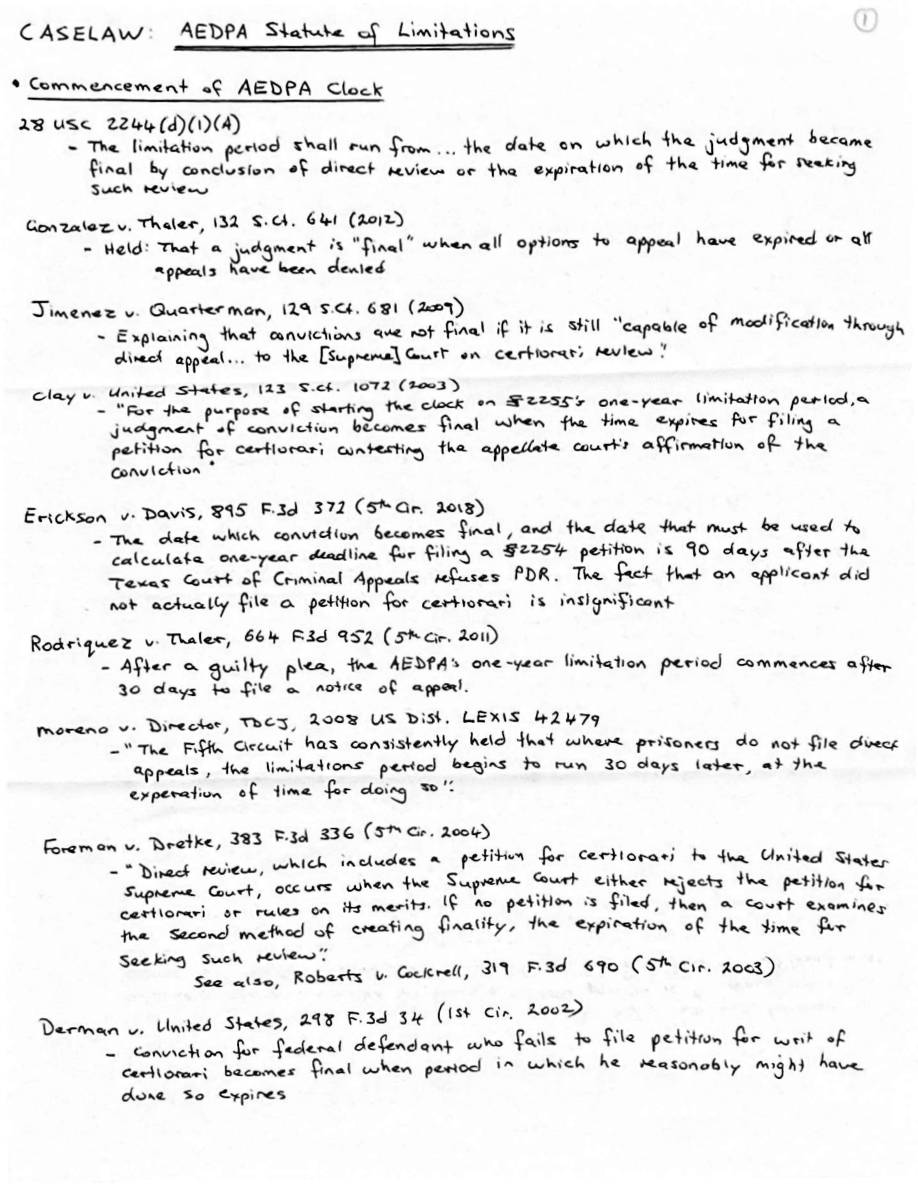 1
CASELAW: AEDPA Statute of Limitations
• Commencement of AEDPA Clock
28 USC 2244(d)(1)(A)
- The limitation period shall run from... the date on which the judgment became
final by conclusion of direct review or the expiration of the time for seeking
such review
Gonzalez v. Thaler, 132 S.Ct. 641 (2012)
- Held: That a judgment is "final" when all options to appeal have expired or all
appeals have been denied
Jimenez v. Quarterman, 129 S.Ct. 681 (2009)
- Explaining that convictions are not final if it is still "capable of modification through
direct appeal... to the [Supreme] Court on certiorari review".
Clay v. United States, 123 S.Ct. 1072 (2003)
- "For the purpose of starting the clock on §2255's one-year limitation period, a
judgment of conviction becomes final when the time expires for filing a
petition for certiorari contesting the appellate court's affirmation of the
conviction"
Erickson v. Davis, 895 F.3d 372 (5th Cir. 2018)
- The date which conviction becomes final, and the date that must be used to
calculate one-year deadline for filing a §2254 petition is 90 days after the
Texas Court of Criminal Appeals refuses PDR. The fact that an applicant did
not actually file a petition for certiorari is insignificant
Rodriquez v. Thaler, 664 F.3d 952 (5th Cir. 2011)
- After a guilty plea, the AEDPA's one-year limitation period commences after
30 days to file a notice of appeal.
Moreno v. Director, TDCJ, 2008 US Dist. LEXIS 42479
- "The Fifth Circuit has consistently held that where prisoners do not file direct
appeals, the limitations period begins to run 30 days later, at the
experation of time for doing so".
Foreman v. Dretke, 383 F.3d 336 (5th Cir. 2004)
- "Direct review, which includes a petition for certiorari to the United States
Supreme Court, occurs when the Supreme Court either rejects the petition for
certiorari or rules on its merits. If no petition is filed, then a court examines
the second method of creating finality, the expiration of the time for
seeking such review".
See also, Roberts v. Cockrell, 319 F.3d 690 (5th Cir. 2003)
Derman v. United States, 298 F.3d 34 (1st Cir. 2002)
- Conviction for federal defendant who fails to file petition for writ of
certiorari becomes final when period in which he reasonably might have
done so expires